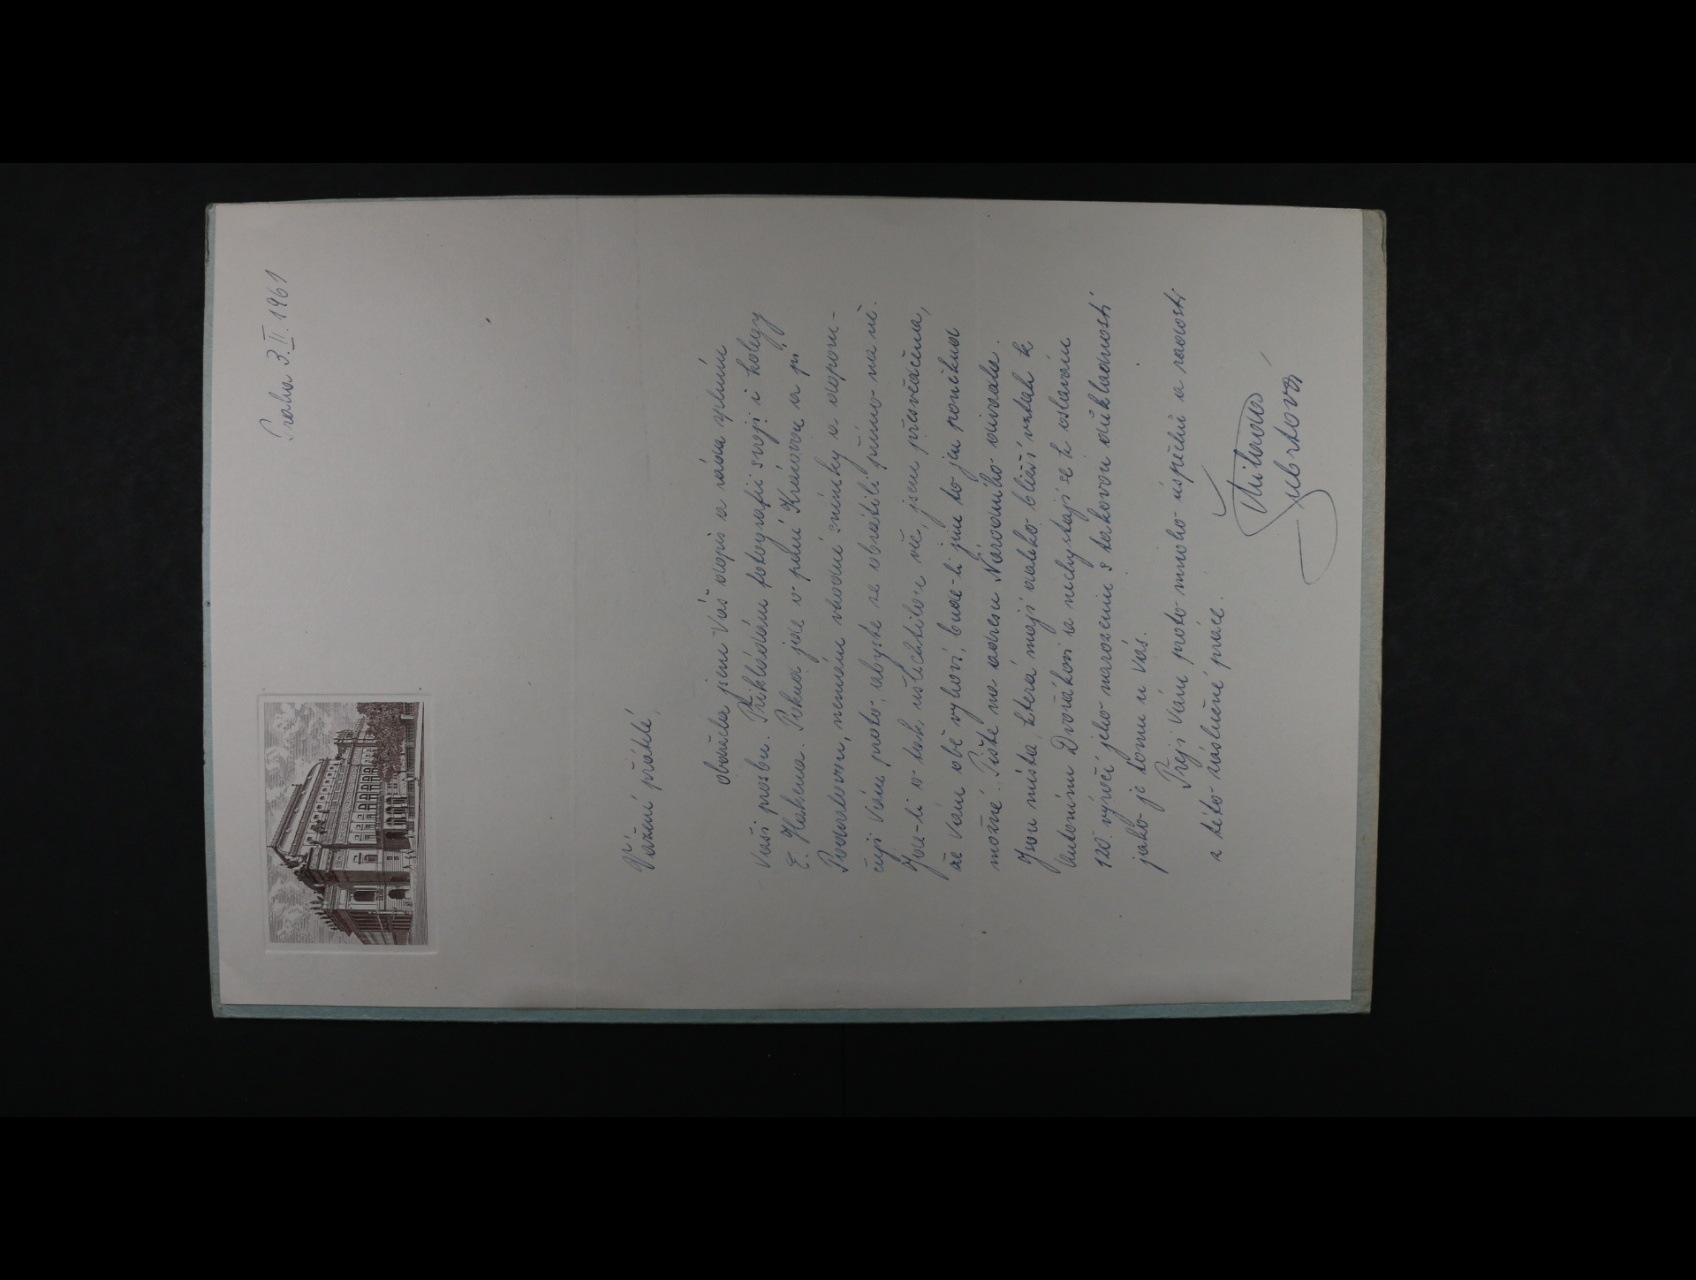 Praha 3.II.1961
Vážení přátelé,
obdržela jsem Váš dopis a ráda splním
Vaši prosbu. Přikládám fotografii svoji i kolegy
E. Hakena. Pokud jde o paní Krásovou a pí
Podvalovou, nemám vhodné snímky a doporu-
čuji Vám proto, abyste se obrátili přímo na ně.
Jde-li o tak ušlechtilou věc, jsem přesvědčena,
že Vám obě vyhoví, bude-li jim to jen poněkud
možné. Pište na adresu Národního divadla.
Jsou místa, která mají daleko bližší vztah k
Antonínu Dvořákovi a nechystají se k oslavám
120 výročí jeho narození s takovou důkladností
jako je tomu u Vás.
Přeji Vám proto mnoho úspěchů a radosti
z této záslužné práce.
Milada
Šubrtová